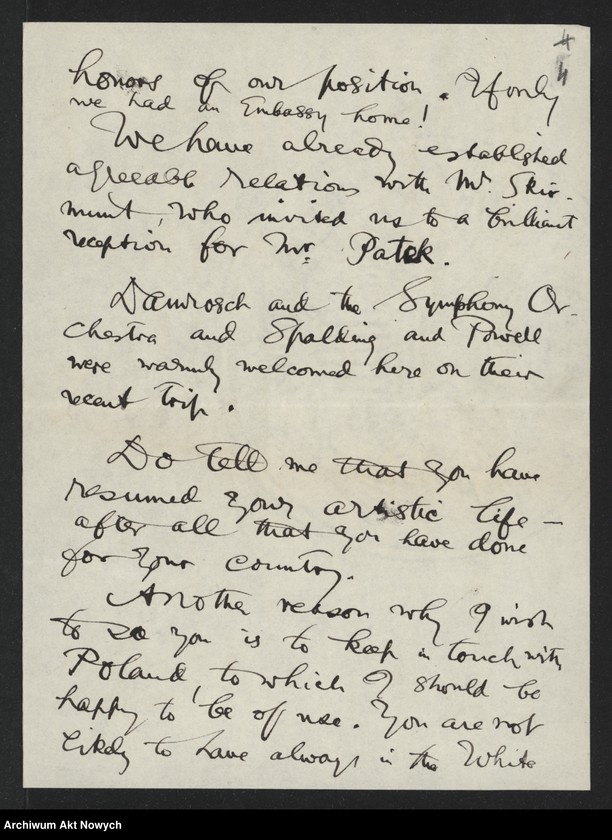 4
4
honors of our position. If only
we had an Embassy home!
We have already established
agreeable relations with Mr. Skir-
munt, who invited us to a brilliant
reception for Mr. Patek.
Damrosch and the Symphony Or-
chestra and Spalding and Powell
were warmly welcomed here on their
recent trip.
Do tell me that you have
resumed your artistic life —
after all that you have done
for your country.
Another reason why I wish
to see you is to keep in touch with
Poland, to which I should be
happy to be of use. You are not
likely to have always in the White
Archiwum Akt Nowych